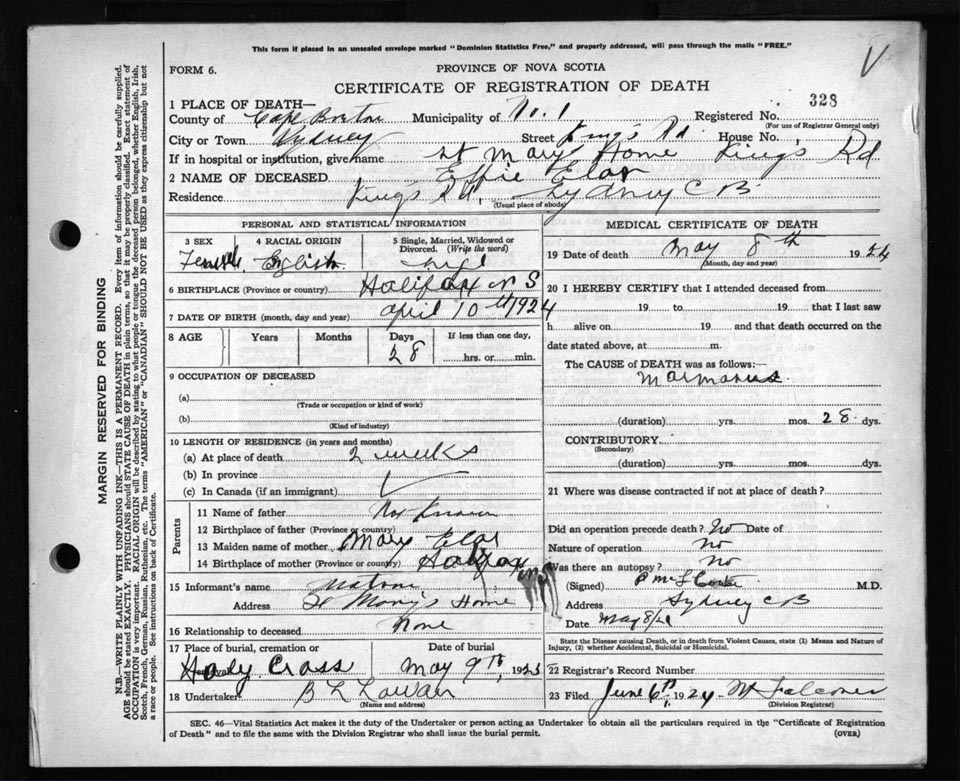 This form if placed in an unsealed envelope marked "Dominion Statistics Free," and properly addressed, will pass through the mails "FREE."
V
FORM 6.
PROVINCE OF NOVA SCOTIA
CERTIFICATE OF REGISTRATION OF DEATH
328
1 PLACE OF DEATH—
County of Cape Breton Municipality of No. 1 Registered No.
(For use of Registrar General only)
City or Town Sydney Street King's Rd House No.
If in hospital or institution, give name St Mary's Home Kings Rd
2 NAME OF DECEASED Effie
Residence Kings Rd, Sydney C B
(Usual place of abode)
PERSONAL AND STATISTICAL INFORMATION
3 SEX 4 RACIAL ORIGIN 5 Single, Married, Widowed or Divorced. (Write the word)
Female English
6 BIRTHPLACE (Province or country) Halifax N S
7 DATE OF BIRTH (month, day and year) April 10th 1924
8 AGE Years Months Days If less than one day,
28 hrs. or min.
9 OCCUPATION OF DECEASED
(a)
(Trade or occupation or kind of work)
(b)
(Kind of industry)
10 LENGTH OF RESIDENCE (in years and months)
(a) At place of death 2 weeks
(b) In province
(c) In Canada (if an immigrant)
Parents
11 Name of father Not Known
12 Birthplace of father (Province or country)
13 Maiden name of mother Mary
14 Birthplace of mother (Province or country) Halifax NS
15 Informant's name Matron
Address St Mary's Home
16 Relationship to deceased None
17 Place of burial, cremation or removal Date of burial
Holy Cross May 9th, 1923
18 Undertaker
(Name and address)
MEDICAL CERTIFICATE OF DEATH
19 Date of death May 8th 1924
(Month, day and year)
20 I HEREBY CERTIFY that I attended deceased from
19 to 19 that I last saw
h alive on 19 and that death occurred on the
date stated above, at m.
The CAUSE OF DEATH was as follows:
Marmarus
(duration) yrs. mos. 28 dys.
CONTRIBUTORY
(Secondary)
(duration) yrs. mos. dys.
21 Where was disease contracted if not at place of death?
Did an operation precede death? No Date of
Nature of operation No
Was there an autopsy? No
(Signed) M.D.
Address Sydney C B
Date May 8/24
State the Disease causing Death, or in death from Violent Causes, state (1) Means and Nature of Injury, (2) whether Accidental, Suicidal or Homicidal.
22 Registrar's Record Number
23 Filed June 6th, 1924 W Falconer
(Division Registrar)
SEC. 46—Vital Statistics Act makes it the duty of the Undertaker or person acting as Undertaker to obtain all the particulars required in the "Certificate of Registration
of Death" and to file the same with the Division Registrar who shall issue the burial permit.
(OVER)
MARGIN RESERVED FOR BINDING
N.B.—WRITE PLAINLY WITH UNFADING INK—THIS IS A PERMANENT RECORD. Every item of information should be carefully supplied.
AGE should be stated EXACTLY. PHYSICIANS should STATE CAUSE OF DEATH in plain terms, so that it may be properly classified. Exact statement of
OCCUPATION is very important. RACIAL ORIGIN will be described by stating to what people or tongue the deceased person belonged, whether English, Irish,
Scotch, French, German, Russian, Ruthenian, etc. The terms "AMERICAN" or "CANADIAN" SHOULD NOT BE USED as they express citizenship but not
a race or people. See instructions on back of Certificate.